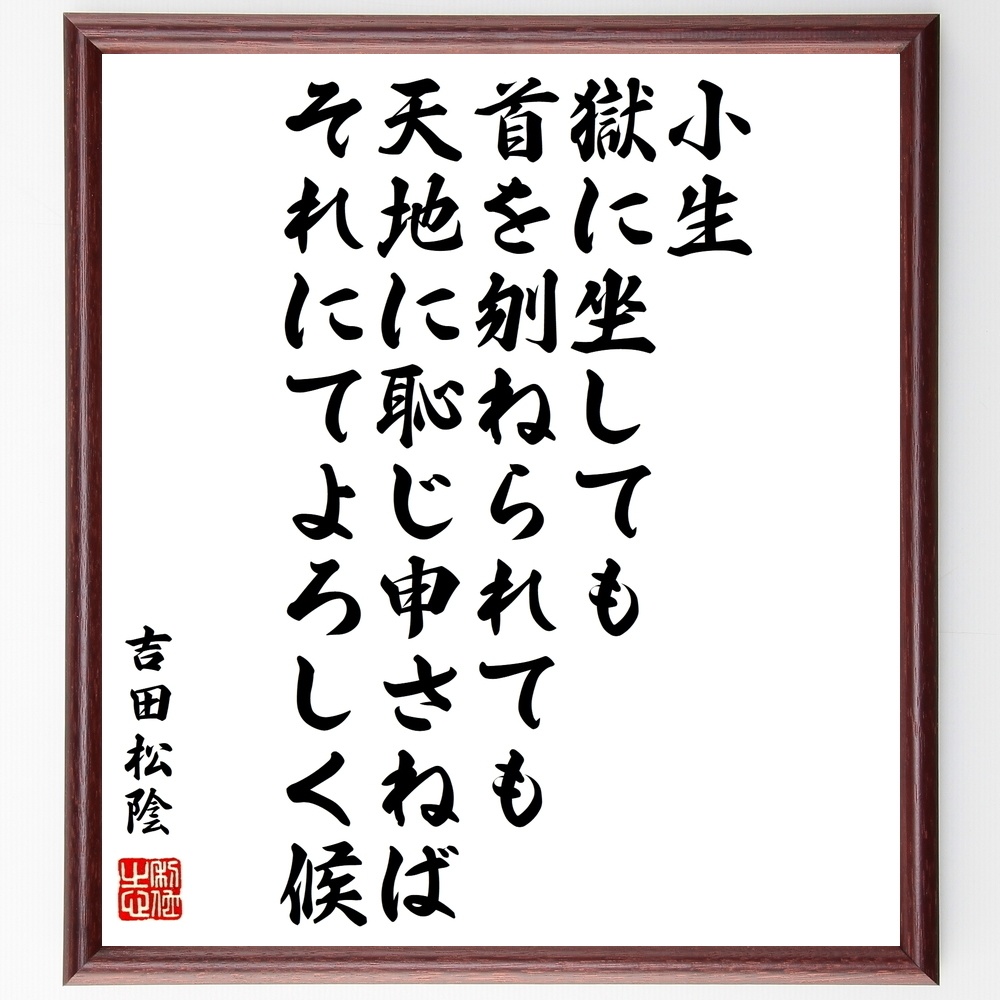 小生
獄に坐しても
首を刎ねられても
天地に恥じ申さねば
それにてよろしく候
吉田松陰